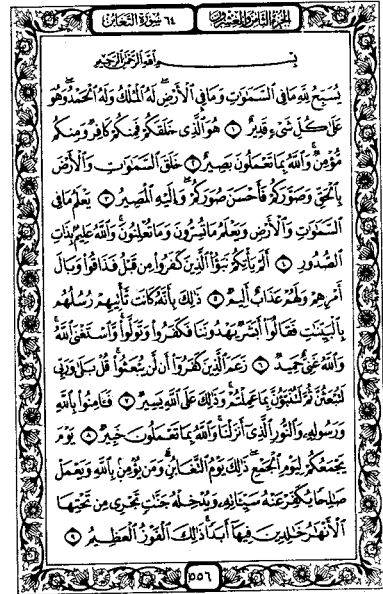 الجزء الثامن والعشرون ٦٤ سورة التغابن
بسم الله الرحمن الرحيم
يُسَبِّحُ لِلَّهِ مَا فِي السَّمَاوَاتِ وَمَا فِي الْأَرْضِ لَهُ الْمُلْكُ وَلَهُ الْحَمْدُ وَهُوَ
عَلَىٰ كُلِّ شَيْءٍ قَدِيرٌ ١ هُوَ الَّذِي خَلَقَكُمْ فَمِنكُمْ كَافِرٌ وَمِنكُم
مُّؤْمِنٌ وَاللَّهُ بِمَا تَعْمَلُونَ بَصِيرٌ ٢ خَلَقَ السَّمَاوَاتِ وَالْأَرْضَ
بِالْحَقِّ وَصَوَّرَكُمْ فَأَحْسَنَ صُوَرَكُمْ وَإِلَيْهِ الْمَصِيرُ ٣ يَعْلَمُ مَا فِي
السَّمَاوَاتِ وَالْأَرْضِ وَيَعْلَمُ مَا تُسِرُّونَ وَمَا تُعْلِنُونَ وَاللَّهُ عَلِيمٌ بِذَاتِ
الصُّدُورِ ٤ أَلَمْ يَأْتِكُمْ نَبَأُ الَّذِينَ كَفَرُوا مِن قَبْلُ فَذَاقُوا وَبَالَ
أَمْرِهِمْ وَلَهُمْ عَذَابٌ أَلِيمٌ ٥ ذَٰلِكَ بِأَنَّهُ كَانَت تَّأْتِيهِمْ رُسُلُهُم
بِالْبَيِّنَاتِ فَقَالُوا أَبَشَرٌ يَهْدُونَنَا فَكَفَرُوا وَتَوَلَّوا وَّاسْتَغْنَى اللَّهُ
وَاللَّهُ غَنِيٌّ حَمِيدٌ ٦ زَعَمَ الَّذِينَ كَفَرُوا أَن لَّن يُبْعَثُوا قُلْ بَلَىٰ وَرَبِّي
لَتُبْعَثُنَّ ثُمَّ لَتُنَبَّؤُنَّ بِمَا عَمِلْتُمْ وَذَٰلِكَ عَلَى اللَّهِ يَسِيرٌ ٧ فَآمِنُوا بِاللَّهِ
وَرَسُولِهِ وَالنُّورِ الَّذِي أَنزَلْنَا وَاللَّهُ بِمَا تَعْمَلُونَ خَبِيرٌ ٨ يَوْمَ
يَجْمَعُكُمْ لِيَوْمِ الْجَمْعِ ذَٰلِكَ يَوْمُ التَّغَابُنِ وَمَن يُؤْمِن بِاللَّهِ وَيَعْمَلْ
صَالِحًا يُكَفِّرْ عَنْهُ سَيِّئَاتِهِ وَيُدْخِلْهُ جَنَّاتٍ تَجْرِي مِن تَحْتِهَا
الْأَنْهَارُ خَالِدِينَ فِيهَا أَبَدًا ذَٰلِكَ الْفَوْزُ الْعَظِيمُ ٩
٥٥٦